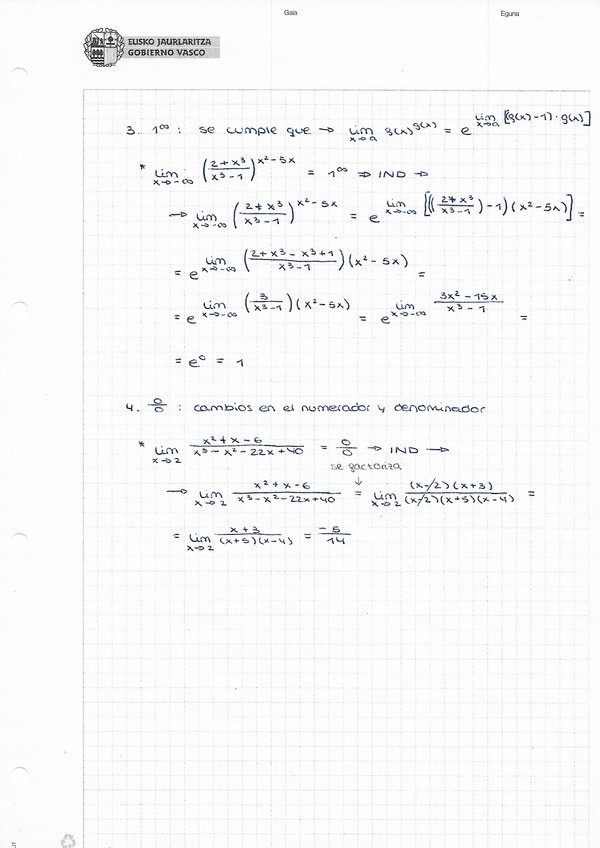 Gaia Eguna
EUSKO JAURLARITZA
GOBIERNO VASCO
3. 1^∞ : se cumple que → lim x→a f(x)^g(x) = e^(lim x→a [f(x)-1]·g(x)]
* lim x→-∞ ((2+x³)/(x³-1))^(x²-5x) = 1^∞ ⇒ IND →
→ lim x→-∞ ((2+x³)/(x³-1))^(x²-5x) = e^(lim x→-∞ [((2+x³)/(x³-1))-1)(x²-5x)] =
= e^(lim x→-∞ ((2+x³-x³+1)/(x³-1))(x²-5x) =
= e^(lim x→-∞ (3/(x³-1))(x²-5x) = e^(lim x→-∞ (3x²-15x)/(x³-1) =
= e⁰ = 1
4. 0/0 : cambios en el numerador y denominador
* lim x→2 (x²+x-6)/(x³-x²-22x+40) = 0/0 → IND →
se factoriza
↓
→ lim x→2 (x²+x-6)/(x³-x²-22x+40) = lim x→2 (x-2)(x+3)/(x-2)(x+5)(x-4) =
= lim x→2 (x+3)/(x+5)(x-4) = -5/14
5